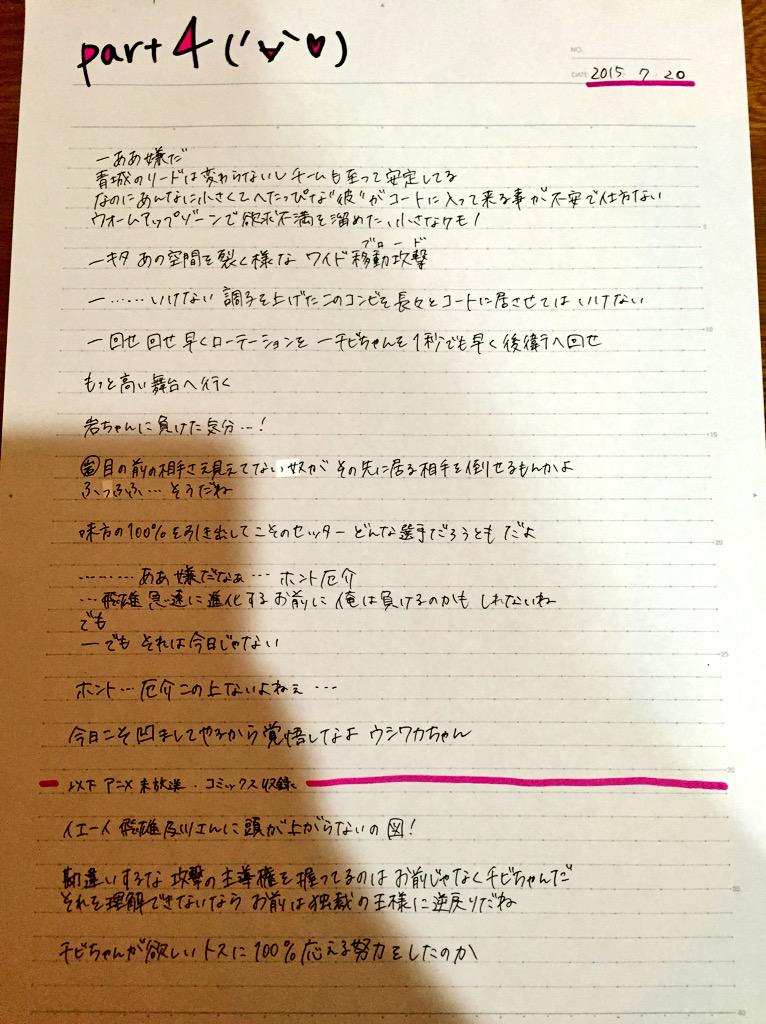 part 4 (´∀`♥)
NO.
DATE 2015 7 20
ーああ嫌だ
青城のリードは変わらないしチームも至って安定してる
なのにあんなに小さくてへたっぴな"彼"がコートに入って来る事が不安で仕方ない
ウォームアップゾーンで欲求不満を溜めた小さなケモノ
ーキタ あの空間を裂く様な ワイド移動攻撃
ブロード
ー……いけない 調子を上げたこのコンビを長々とコートに居させてはいけない
ー回せ 回せ 早くローテーションを ーチビちゃんを1秒でも早く後衛へ回せ
もっと高い舞台へ行く
岩ちゃんに負けた気分…!
岩目の前の相手さえ見えてない奴が その先に居る相手を倒せるもんかよ
ふっふふ… そうだね
味方の100%を引き出してこそのセッター どんな選手だろうとも だよ
……… ああ 嫌だなぁ… ホント厄介
…飛雄 急速に進化するお前に 俺は負けるのかも しれないね
でも
ーでも それは今日じゃない
ホント… 厄介この上ないよねぇ …
今日こそ凹ましてやるから覚悟してなよ ウシワカちゃん
以下 アニメ 未放送・コミックス収録
イエーイ 飛雄及川さんに頭が上がらないの図!
勘違いするな 攻撃の主導権を握ってるのは お前じゃなくチビちゃんだ
それを理解できないなら お前は独裁の王様に逆戻りだね
チビちゃんが欲しいトスに100%応える努力をしたのか
5
10
15
20
25
30
35
40